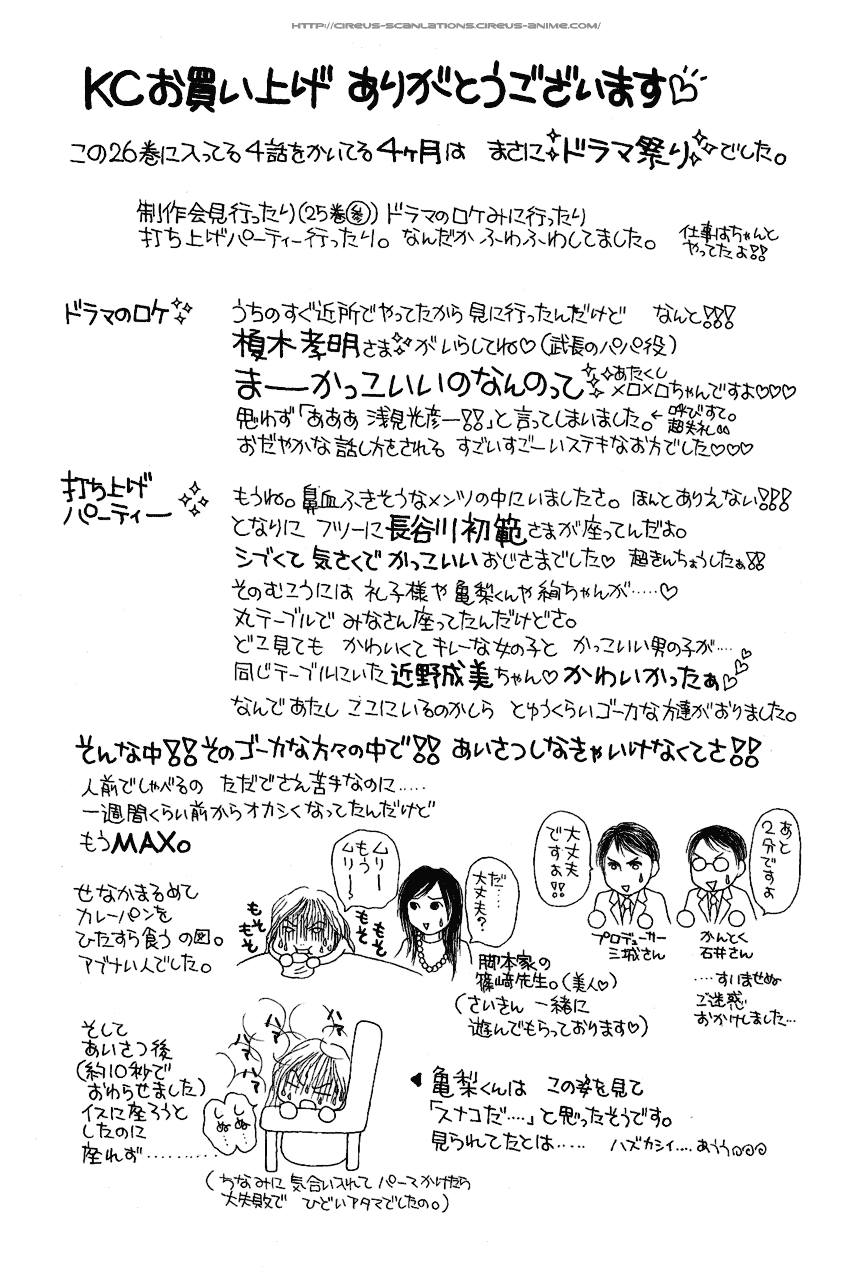 HTTP://CIREUS-SCANLATIONS.CIREUS-ANIME.COM/
KCお買い上げ ありがとうございます♡
この26巻に入ってる4話をかいてる4ヶ月は まさにドラマ祭りでした。
制作会見行ったり(25巻参)) ドラマのロケみに行ったり
打ち上げパーティー行ったり。なんだか ふわふわしてました。
仕事はちゃんと
やってたよ!!
ドラマのロケ
うちのすぐ近所でやってたから 見に行ったんだけど なんと!!!
榎木孝明さまがいらしてね♡(武長のパパ役)
まーーかっこいいのなんのって
あたくし
メロメロちゃんですよ♡♡♡
思わず「あああ 浅見光彦ー!!」と言ってしまいました。
←呼びすて。
超失礼
おだやかな話し方をされる すごいすごーいステキなお方でした♡♡♡
打ち上げ
パーティー
もうね。鼻血ふきそうなメンツの中にいましたさ。ほんとありえない!!!
となりに フツーに長谷川初範さまが座ってんだよ。
シブくて 気さくで かっこいいおじさまでした♡ 超きんちょうしたぁ!!
そのむこうには 礼子様や亀梨くんや絢ちゃんが……♡
丸テーブルで みなさん座ってたんだけどさ。
どこ見ても かわいくてキレーな女の子と かっこいい男の子が…
同じテーブルにいた 近野成美ちゃん♡かわいかったぁ♡♡
なんであたし ここにいるのかしら とゆうくらいゴーカな方達がおりました。
そんな中!!そのゴーカな方々の中で!! あいさつしなきゃいけなくてさ!!
人前でしゃべるの ただでさえ苦手なのに……
一週間くらい前からオカシくなってたんだけど
もうMAX。
せなかまるめて
カレーパンを
ひたすら食う の図。
アブナい人でした。
ムリー
もう
ムリー
もそ
もそ
もそ
もそ
だ…
大丈夫?
脚本家の
篠﨑先生。(美人♡)
(さいきん 一緒に
遊んでもらっております♡)
大丈夫
ですよ!!
プロデューサー
三城さん
あと
2分ですよ
かんとく
石井さん
…すいませぬ
ご迷惑
おかけしました…
そして
あいさつ後
(約10秒で
おわらせました)
イスに座ろうと
したのに
座れず…………
ハァ
ハァ
しぬ…
しぬ…
◀亀梨くんは この姿を見て
「スナコだ…」と思ったそうです。
見られてたとは…… ハズカシイ… あうう
(ちなみに 気合い入れて パーマかけたら
大失敗で ひどいアタマでしたの。)